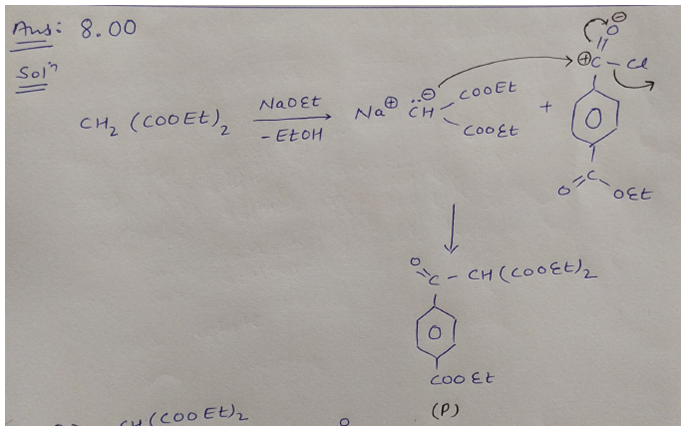 Ans: 8.00
Solⁿ
CH₂ (COOEt)₂
NaOEt
-EtOH
Na⊕ ⊖
CH
COOEt
COOEt
+
⊖
O
⊕C - Cl
O
C
O OEt
O
C - CH(COOEt)₂
O
COOEt
(P)
CH(COOEt)₂
O